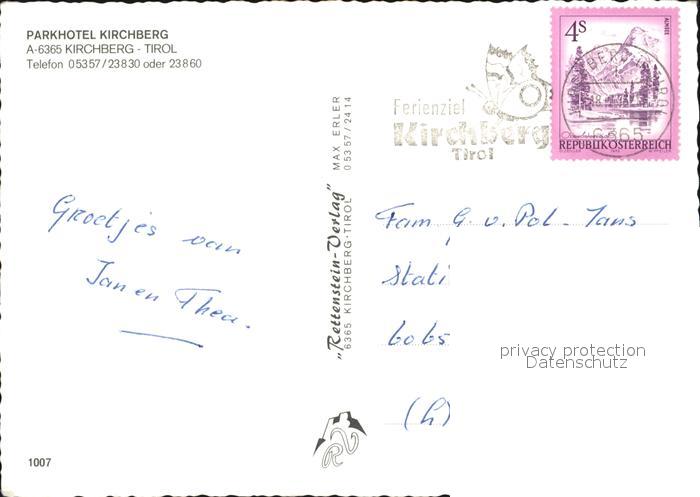 PARKHOTEL KIRCHBERG
A-6365 KIRCHBERG - TIROL
Telefon 05357/23830 oder 23860
Groetjes van
Jan en Thea.
1007
"Rettenstein-Verlag"
6365 KIRCHBERG · TIROL
MAX ERLER
05357/2414
RV
Ferienziel
Kirchberg
Tirol
4S
ALMSEE
REPUBLIK ÖSTERREICH
6365
Fam G. v. Pol - Jans
Stati
6065
(h)
privacy protection
Datenschutz